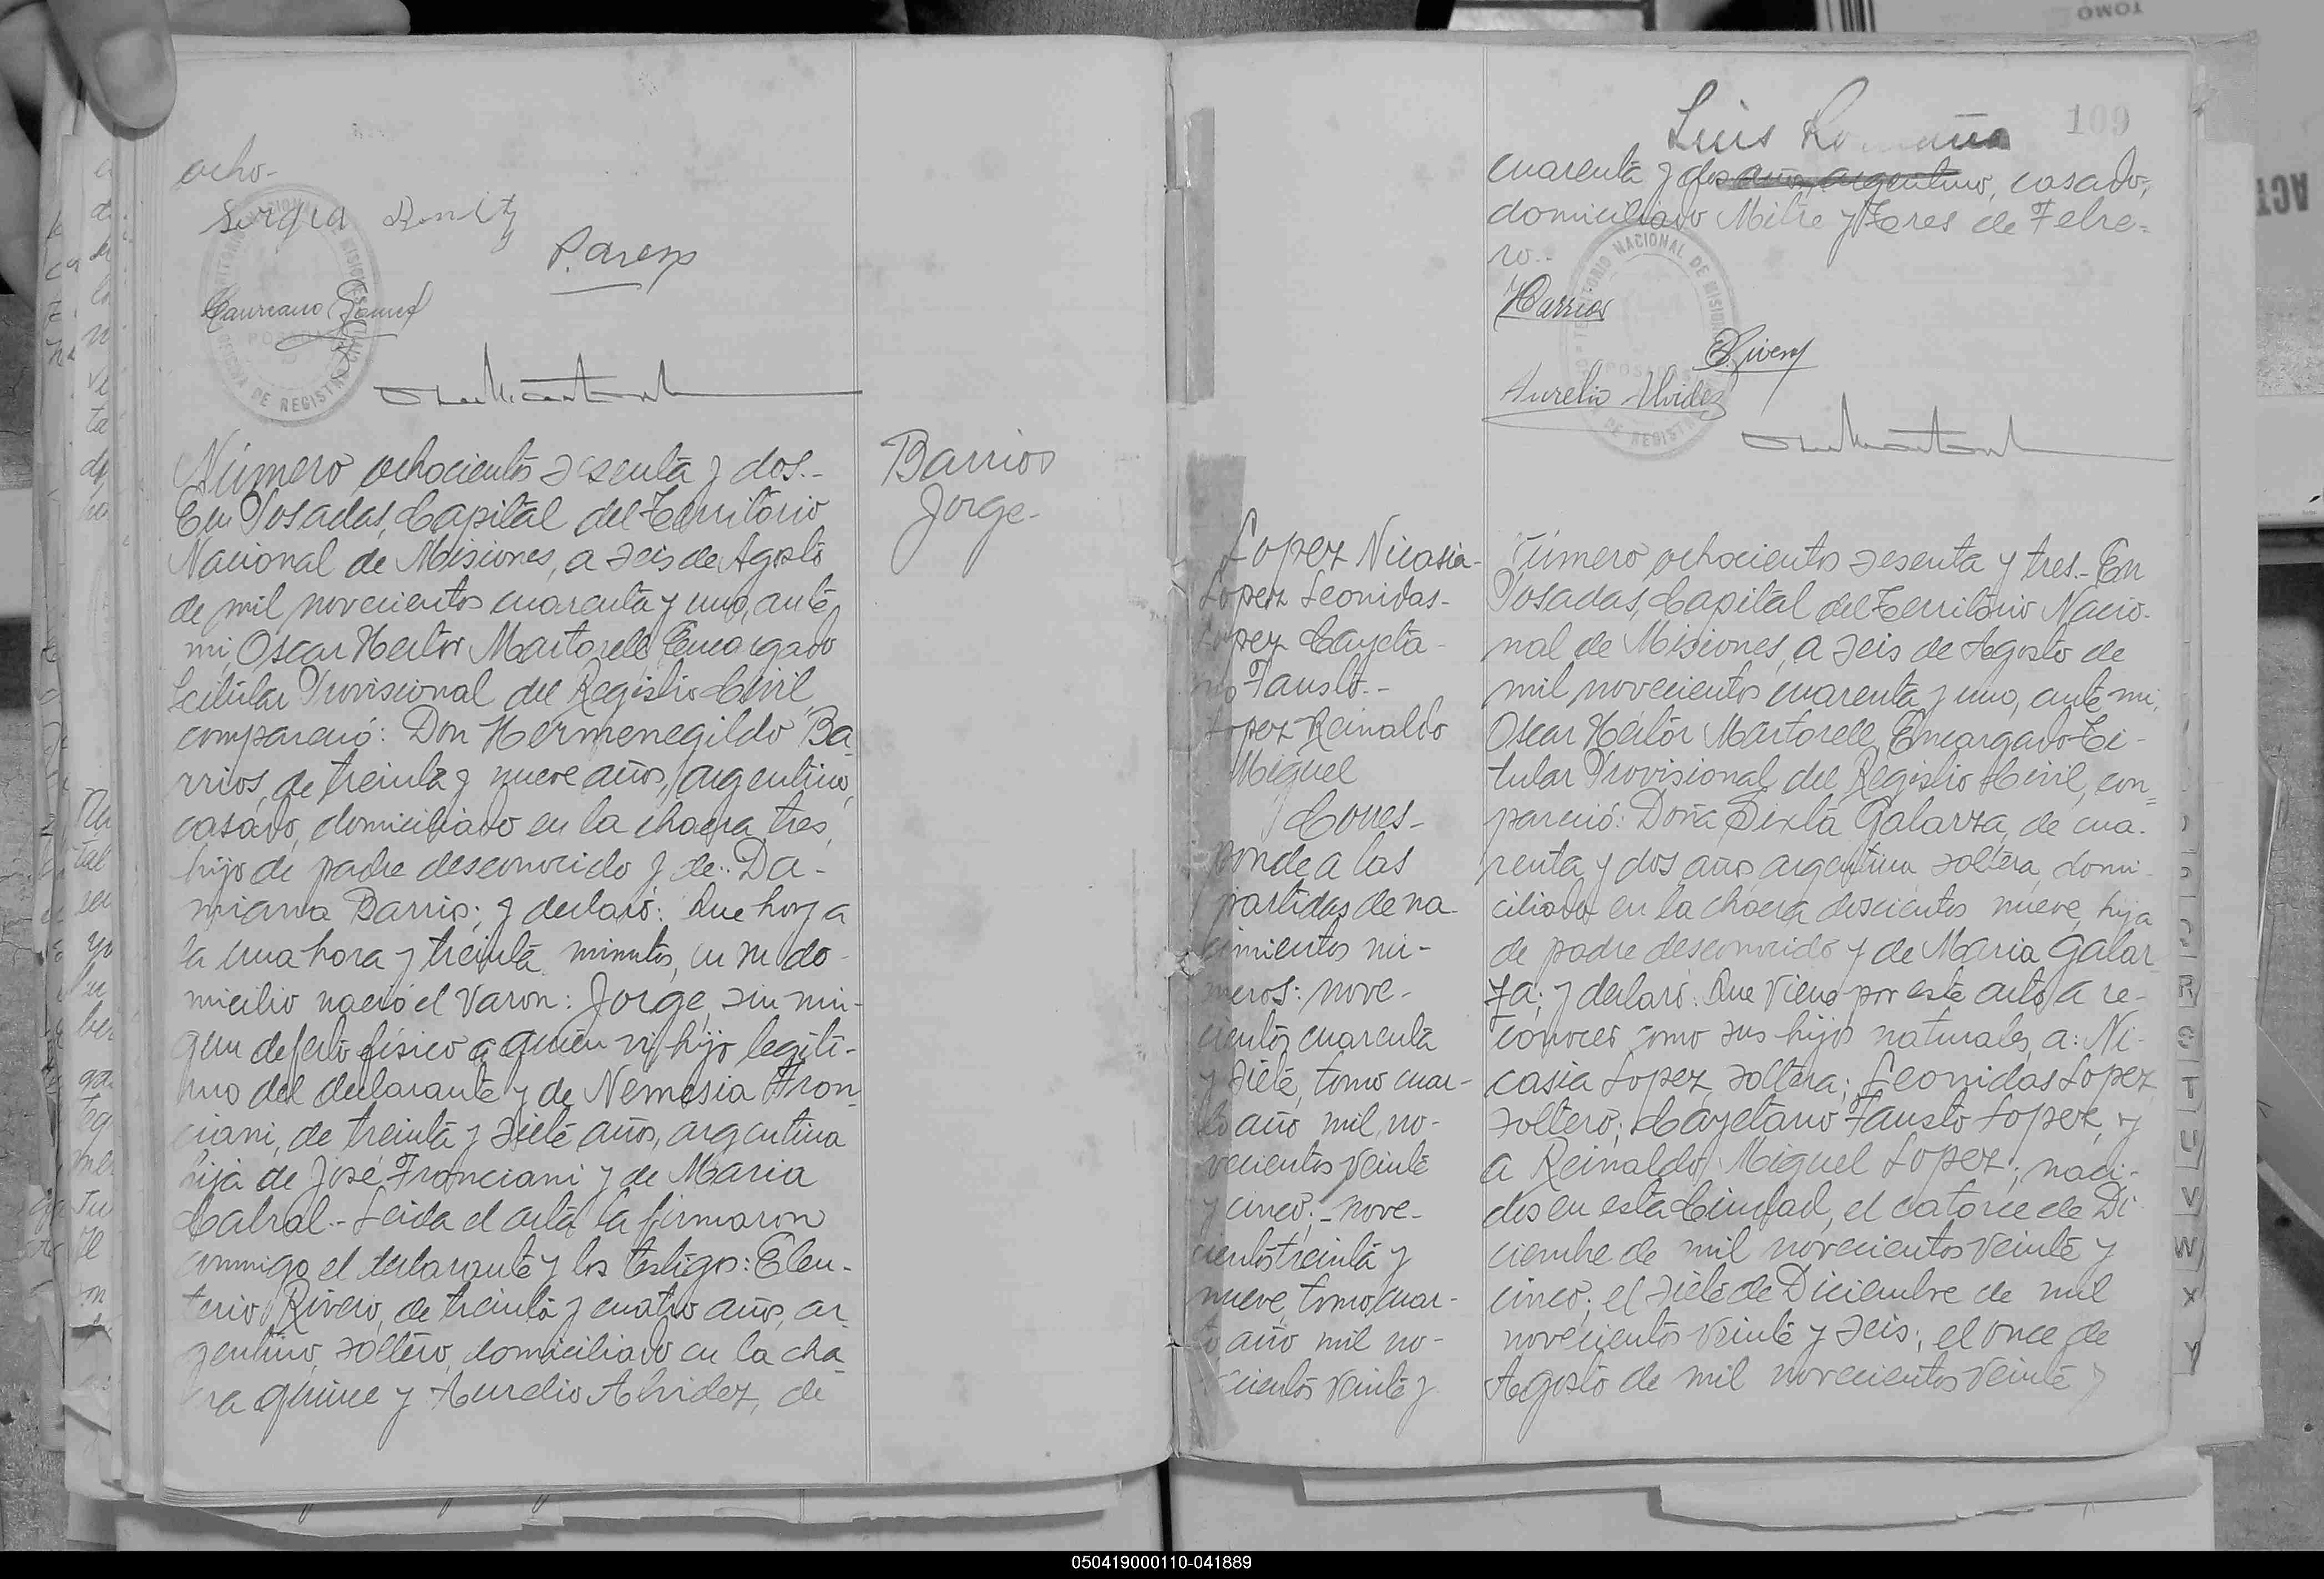 ocho-
Sergia Benitz
P. Arens
Laureano Gomez
Número ochocientos sesenta y dos.-
En Posadas, Capital del Territorio
Nacional de Misiones, a seis de Agosto
de mil novecientos cuarenta y uno, ante
mi, Oscar Hector Martorell Encargado
titular Provisional del Registro Civil,
compareció: Don Hermenegildo Ba
rrios, de treinta y nueve años, argentino,
casado, domiciliado en la chacra tres,
hijo de padre desconocido y de.. Da-
miana Barrios; y declaró: Que hoy a
la una hora y treinta minutos, en su do-
micilio nació el varon: Jorge, sin nin-
gun defecto físico a quién vi, hijo legíti-
mo del declarante y de Nemesia Fran-
ciani, de treinta y siete años, argentina
hija de José Franciani y de Maria
Cabral.- Leida el acta la firmaron
conmigo el declarante y los testigos: Eleu-
terio Rivero, de treinta y cuatro años, ar
gentino, soltero, domiciliado en la cha
ra quince y Aurelio Alvidez, de
Barrios
Jorge-
109
Luis
cuarenta y dos años, argentino, casado,
domiciliado Mitre y Tares de Febre-
ro..
HBarrios
E. Rivero
Aurelio Alvidez
TERRITORIO NACIONAL DE MISIONES
POSADAS
DE REGISTRO
Lopez Nicasia-
Lopez Leonidas-
Lopez Cayeta-
no Fausto.-
Lopez Reinaldo
Miguel
Corres-
ponde a las
partidas de na-
cimientos nú-
meros: nove-
cientos cuarenta
y siete, tomo cuar-
to año mil no-
vecientos veinte
y cinco;- nove-
cientos treinta y
nueve, tomo cuar-
to, año mil no-
vecientos veinte y
Número ochocientos sesenta y tres.- En
Posadas, Capital del Territorio Nacio-
nal de Misiones, a seis de Agosto de
mil novecientos cuarenta y uno, ante mi,
Oscar Hector Martorell Encargado Ti-
tular Provisional del Registro Civil, com-
pareció: Doña Sixta Galarza, de cua-
renta y dos años argentina soltera, domi-
ciliada en la chacra doscientos nueve, hija
de padre desconocido y de Maria Galar-
za; y declaró: Que viene por este acto a re-
conocer como sus hijos naturales, a: Ni-
casia Lopez, soltera; Leonidas Lopez,
soltero; Cayetano Fausto Lopez, y
a Reinaldo Miguel Lopez; naci-
dos en esta Ciudad, el catorce de Di
ciembre de mil novecientos veinte y
cinco; el siete de Diciembre de mil
novecientos veinte y seis; el once de
Agosto de mil novecientos veinte y
R
S
T
U
V
W
X
Y
TOMO
050419000110-041889